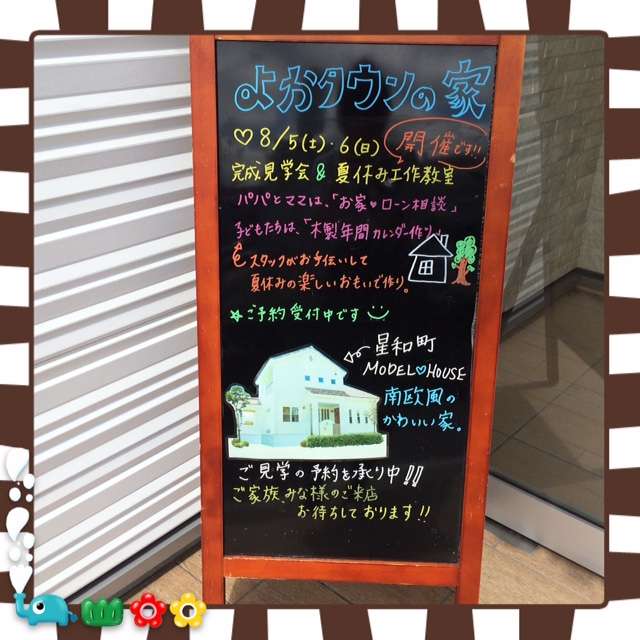 よかタウンの家
♡8/5(土)・6(日) 開催です!!
完成見学会&夏休み工作教室
パパとママは、「お家♡ローン相談」
子どもたちは、「木製年間カレンダー作り」
スタッフがお手伝いして
夏休みの楽しいおもいで作り。
☆ご予約受付中です
星和町
MODEL♡HOUSE
南欧風の
かわいい家。
ご見学の予約を承り中!!
ご家族みな様のご来店
お待ちしております!!